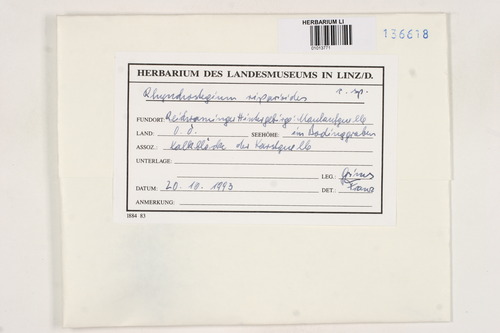 HERBARIUM LI
01013771
136618
HERBARIUM DES LANDESMUSEUMS IN LINZ/D.
Rhynchostegium riparioides
FUNDORT: Reichraminger Hintergebirge: Maulaufquelle
LAND: O.Ö. SEEHÖHE: im Bodinggraben
ASSOZ.: Kalkblöcke der Karstquelle
UNTERLAGE:
LEG.: Grims
DATUM: 20. 10. 1993 DET.: Franz
ANMERKUNG:
1884 83